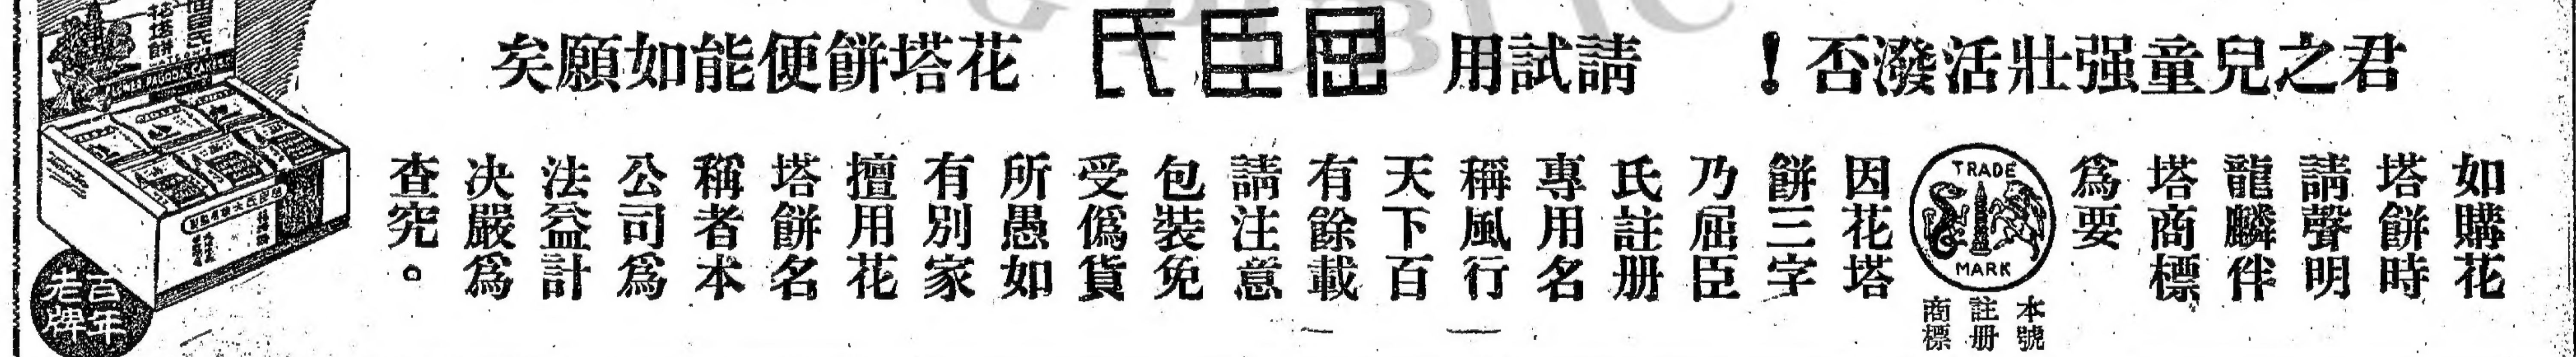 君之兒童强壯活潑否！
請試用
屈臣氏
花塔餅便能如願矣
如購花
塔餅時
請聲明
龍麟伴
塔商標
爲要
TRADE
MARK
本號
註册
商標
因花塔
餅三字
乃屈臣
氏註册
專用名
稱風行
天下百
有餘載
請注意
包裝免
受僞貨
所愚如
有別家
擅用花
塔餅名
稱者本
公司爲
法益計
决嚴爲
查究。
花塔餅
FLOWER PAGODA CAKES
百年
老牌